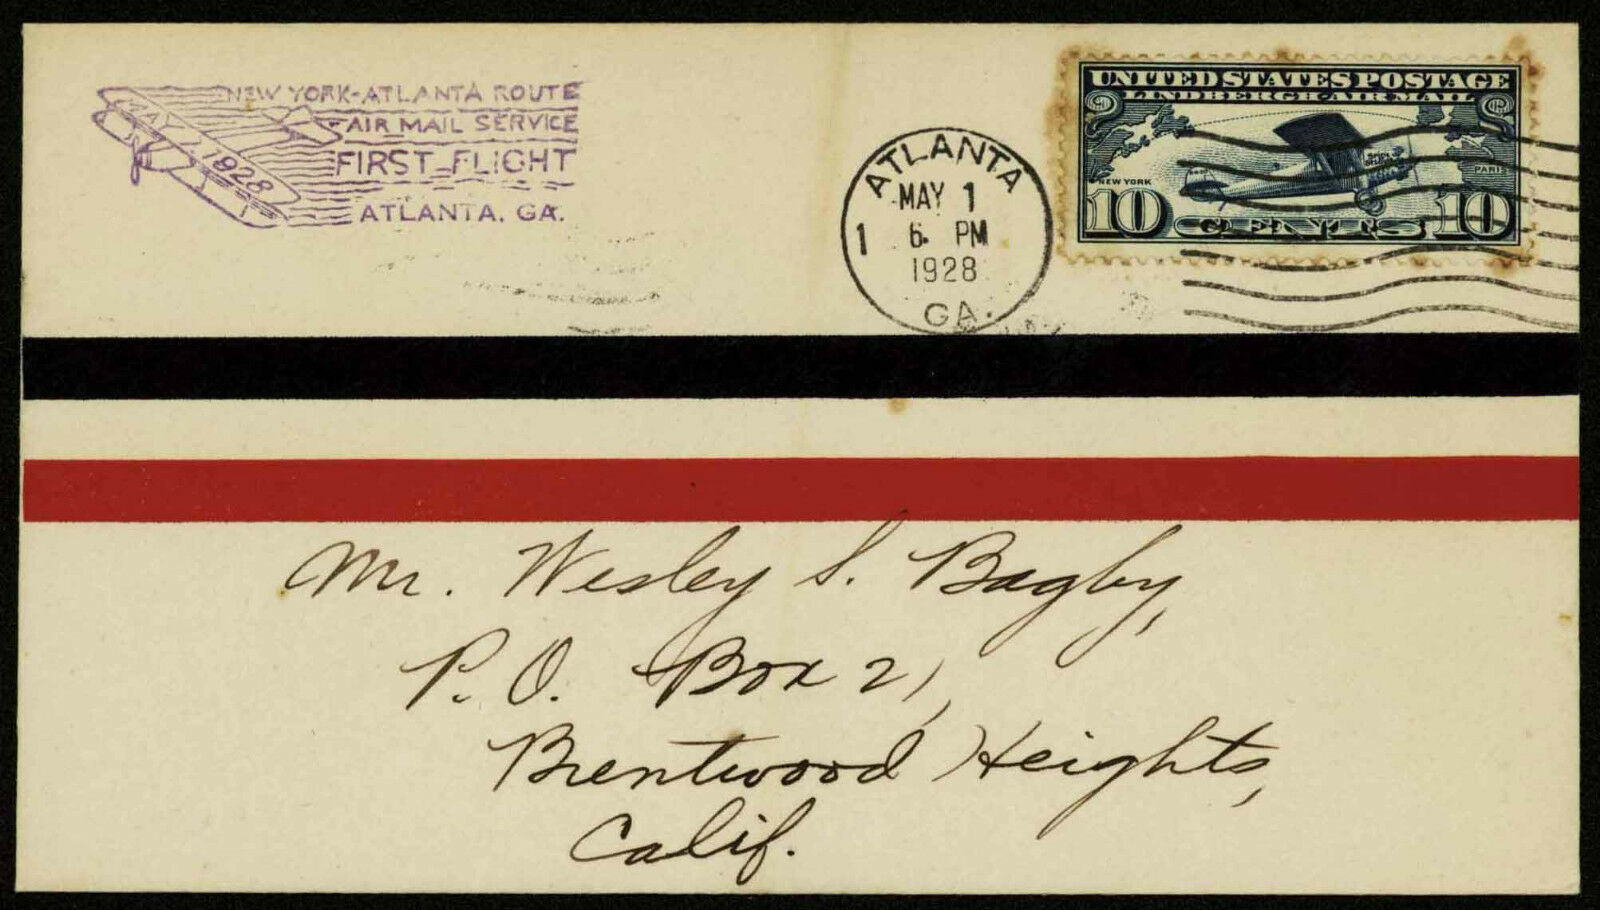 NEW YORK-ATLANTA ROUTE
AIR MAIL SERVICE
FIRST FLIGHT
ATLANTA, GA.
MAY 1 1928
ATLANTA
MAY 1
1 6 PM
1928
GA.
UNITED STATES POSTAGE
LINDBERGH AIR MAIL
NEW YORK
PARIS
10 CENTS 10
Mr. Wesley S. Bagby,
P. O. Box 21,
Brentwood Heights,
Calif.